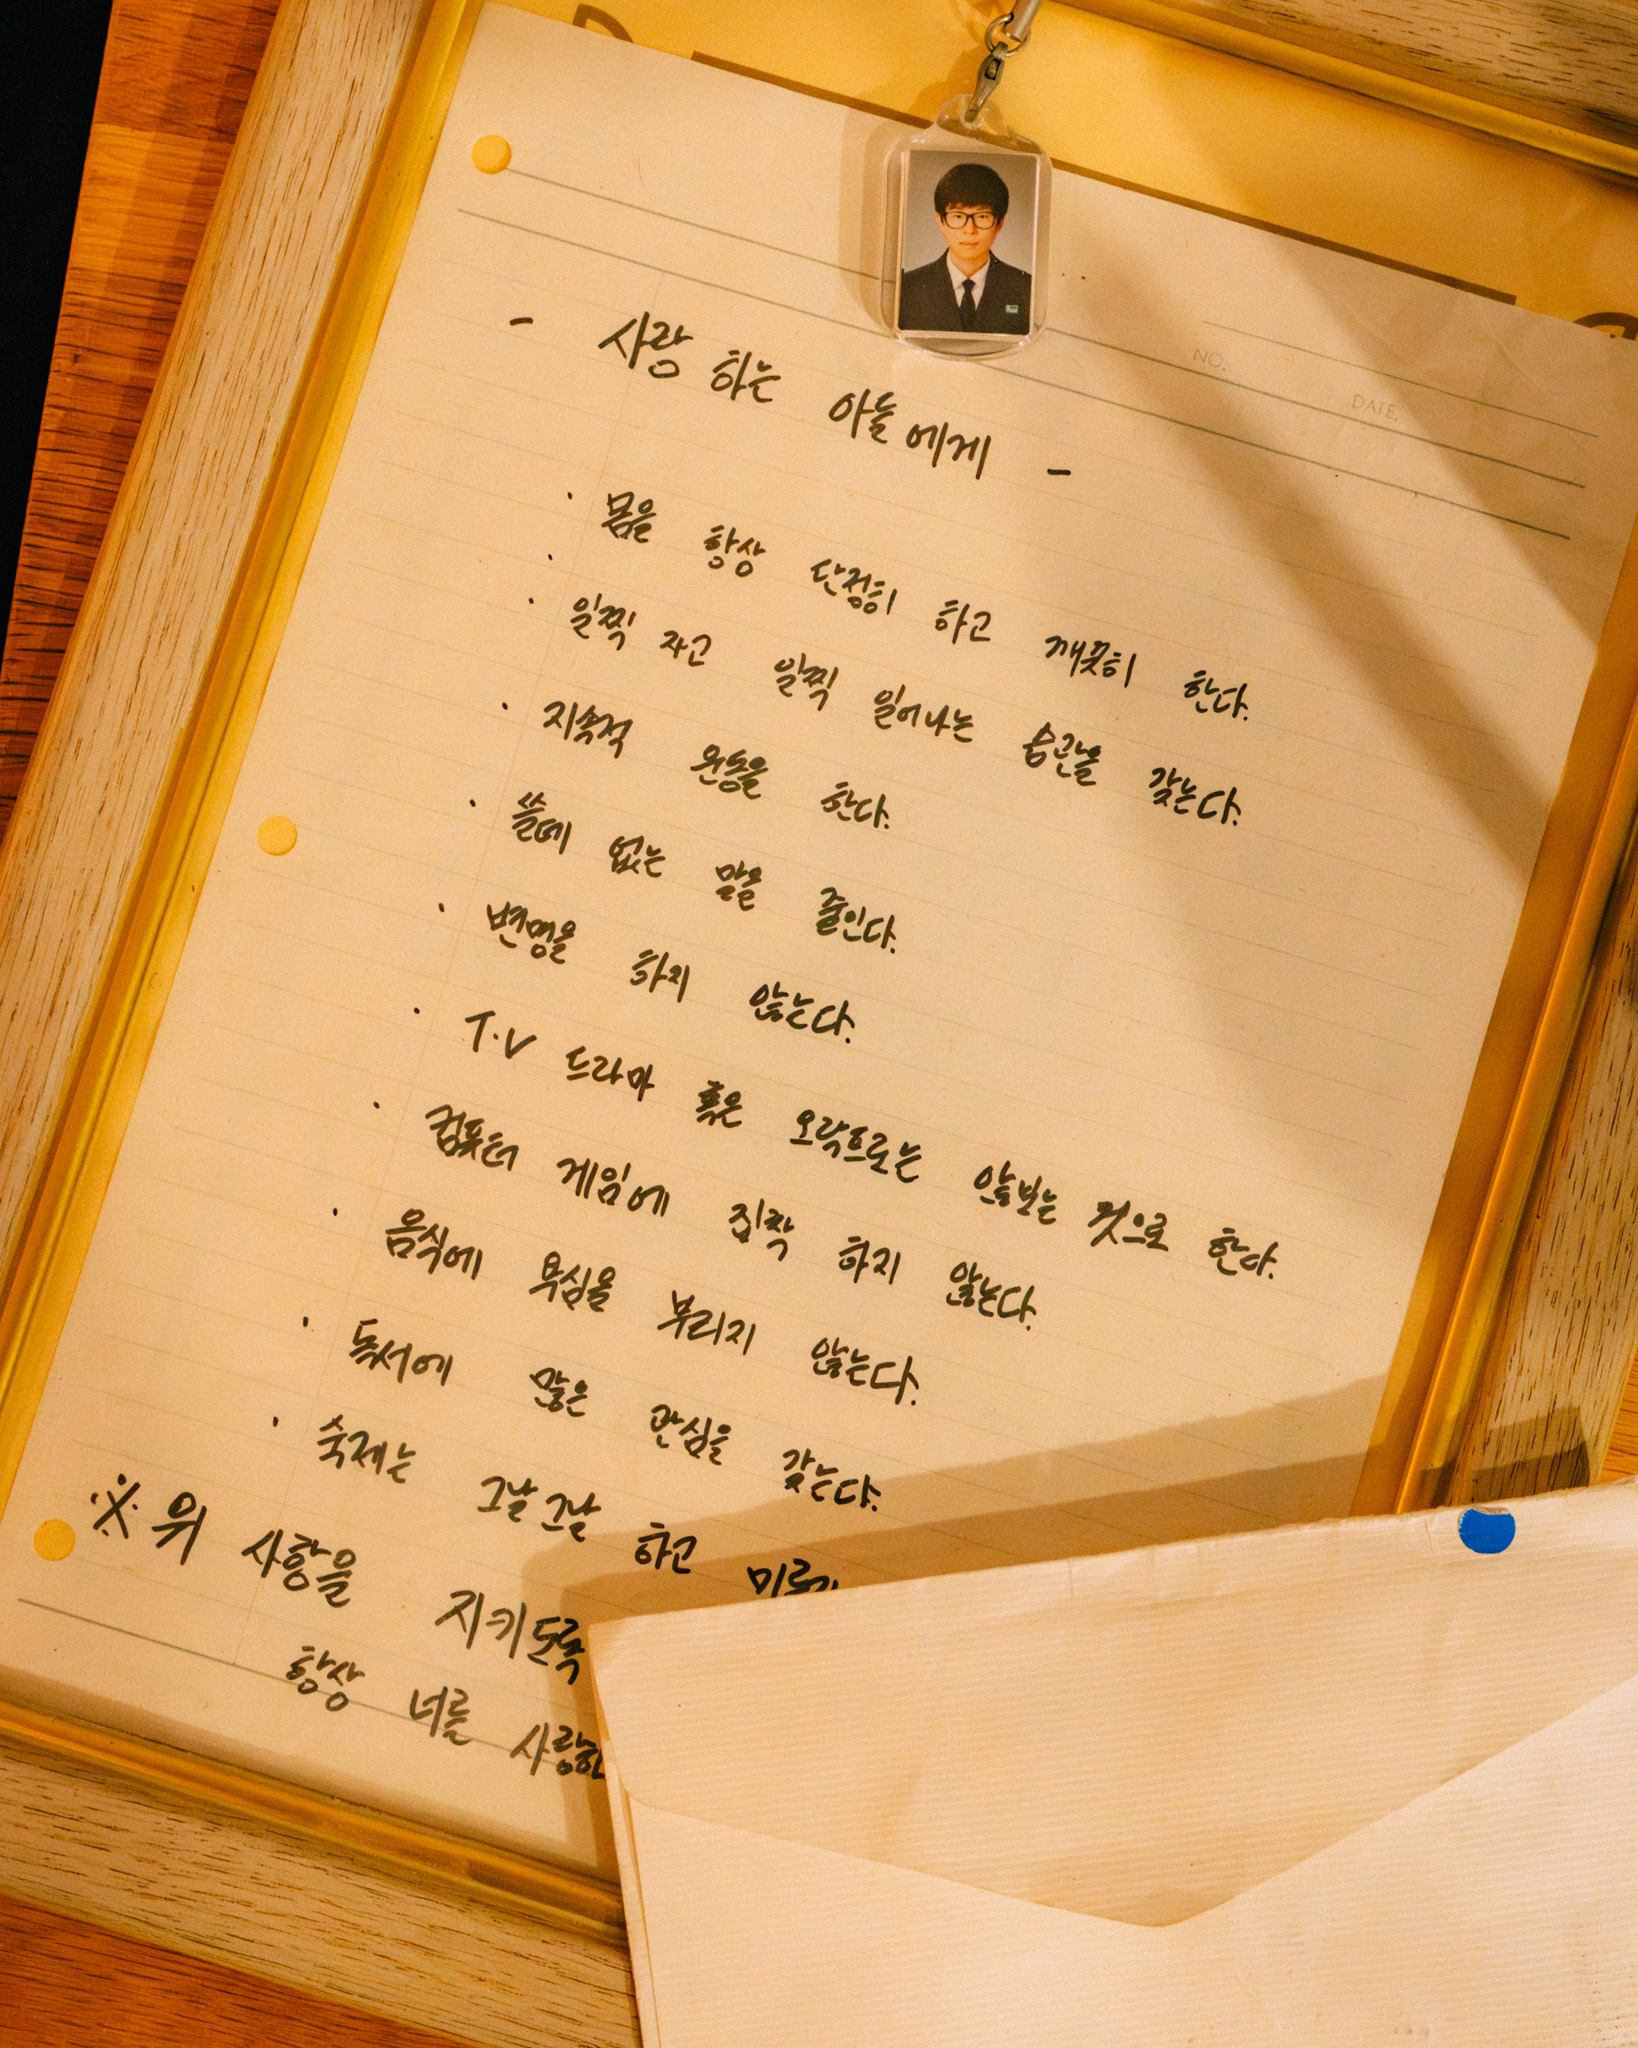 NO.
DATE.
- 사랑 하는 아들에게 -
· 몸을 항상 단정히 하고 깨끗히 한다.
· 일찍 자고 일찍 일어나는 습관을 갖는다.
· 지속적 운동을 한다.
· 쓸데 없는 말을 줄인다.
· 변명을 하지 않는다.
· T.V 드라마 혹은 오락프로는 않보는 것으로 한다.
· 컴퓨터 게임에 집착 하지 않는다.
· 음식에 욕심을 부리지 않는다.
· 독서에 많은 관심을 갖는다.
· 숙제는 그날그날 하고
※ 위 사항을 지키도록
항상 너를